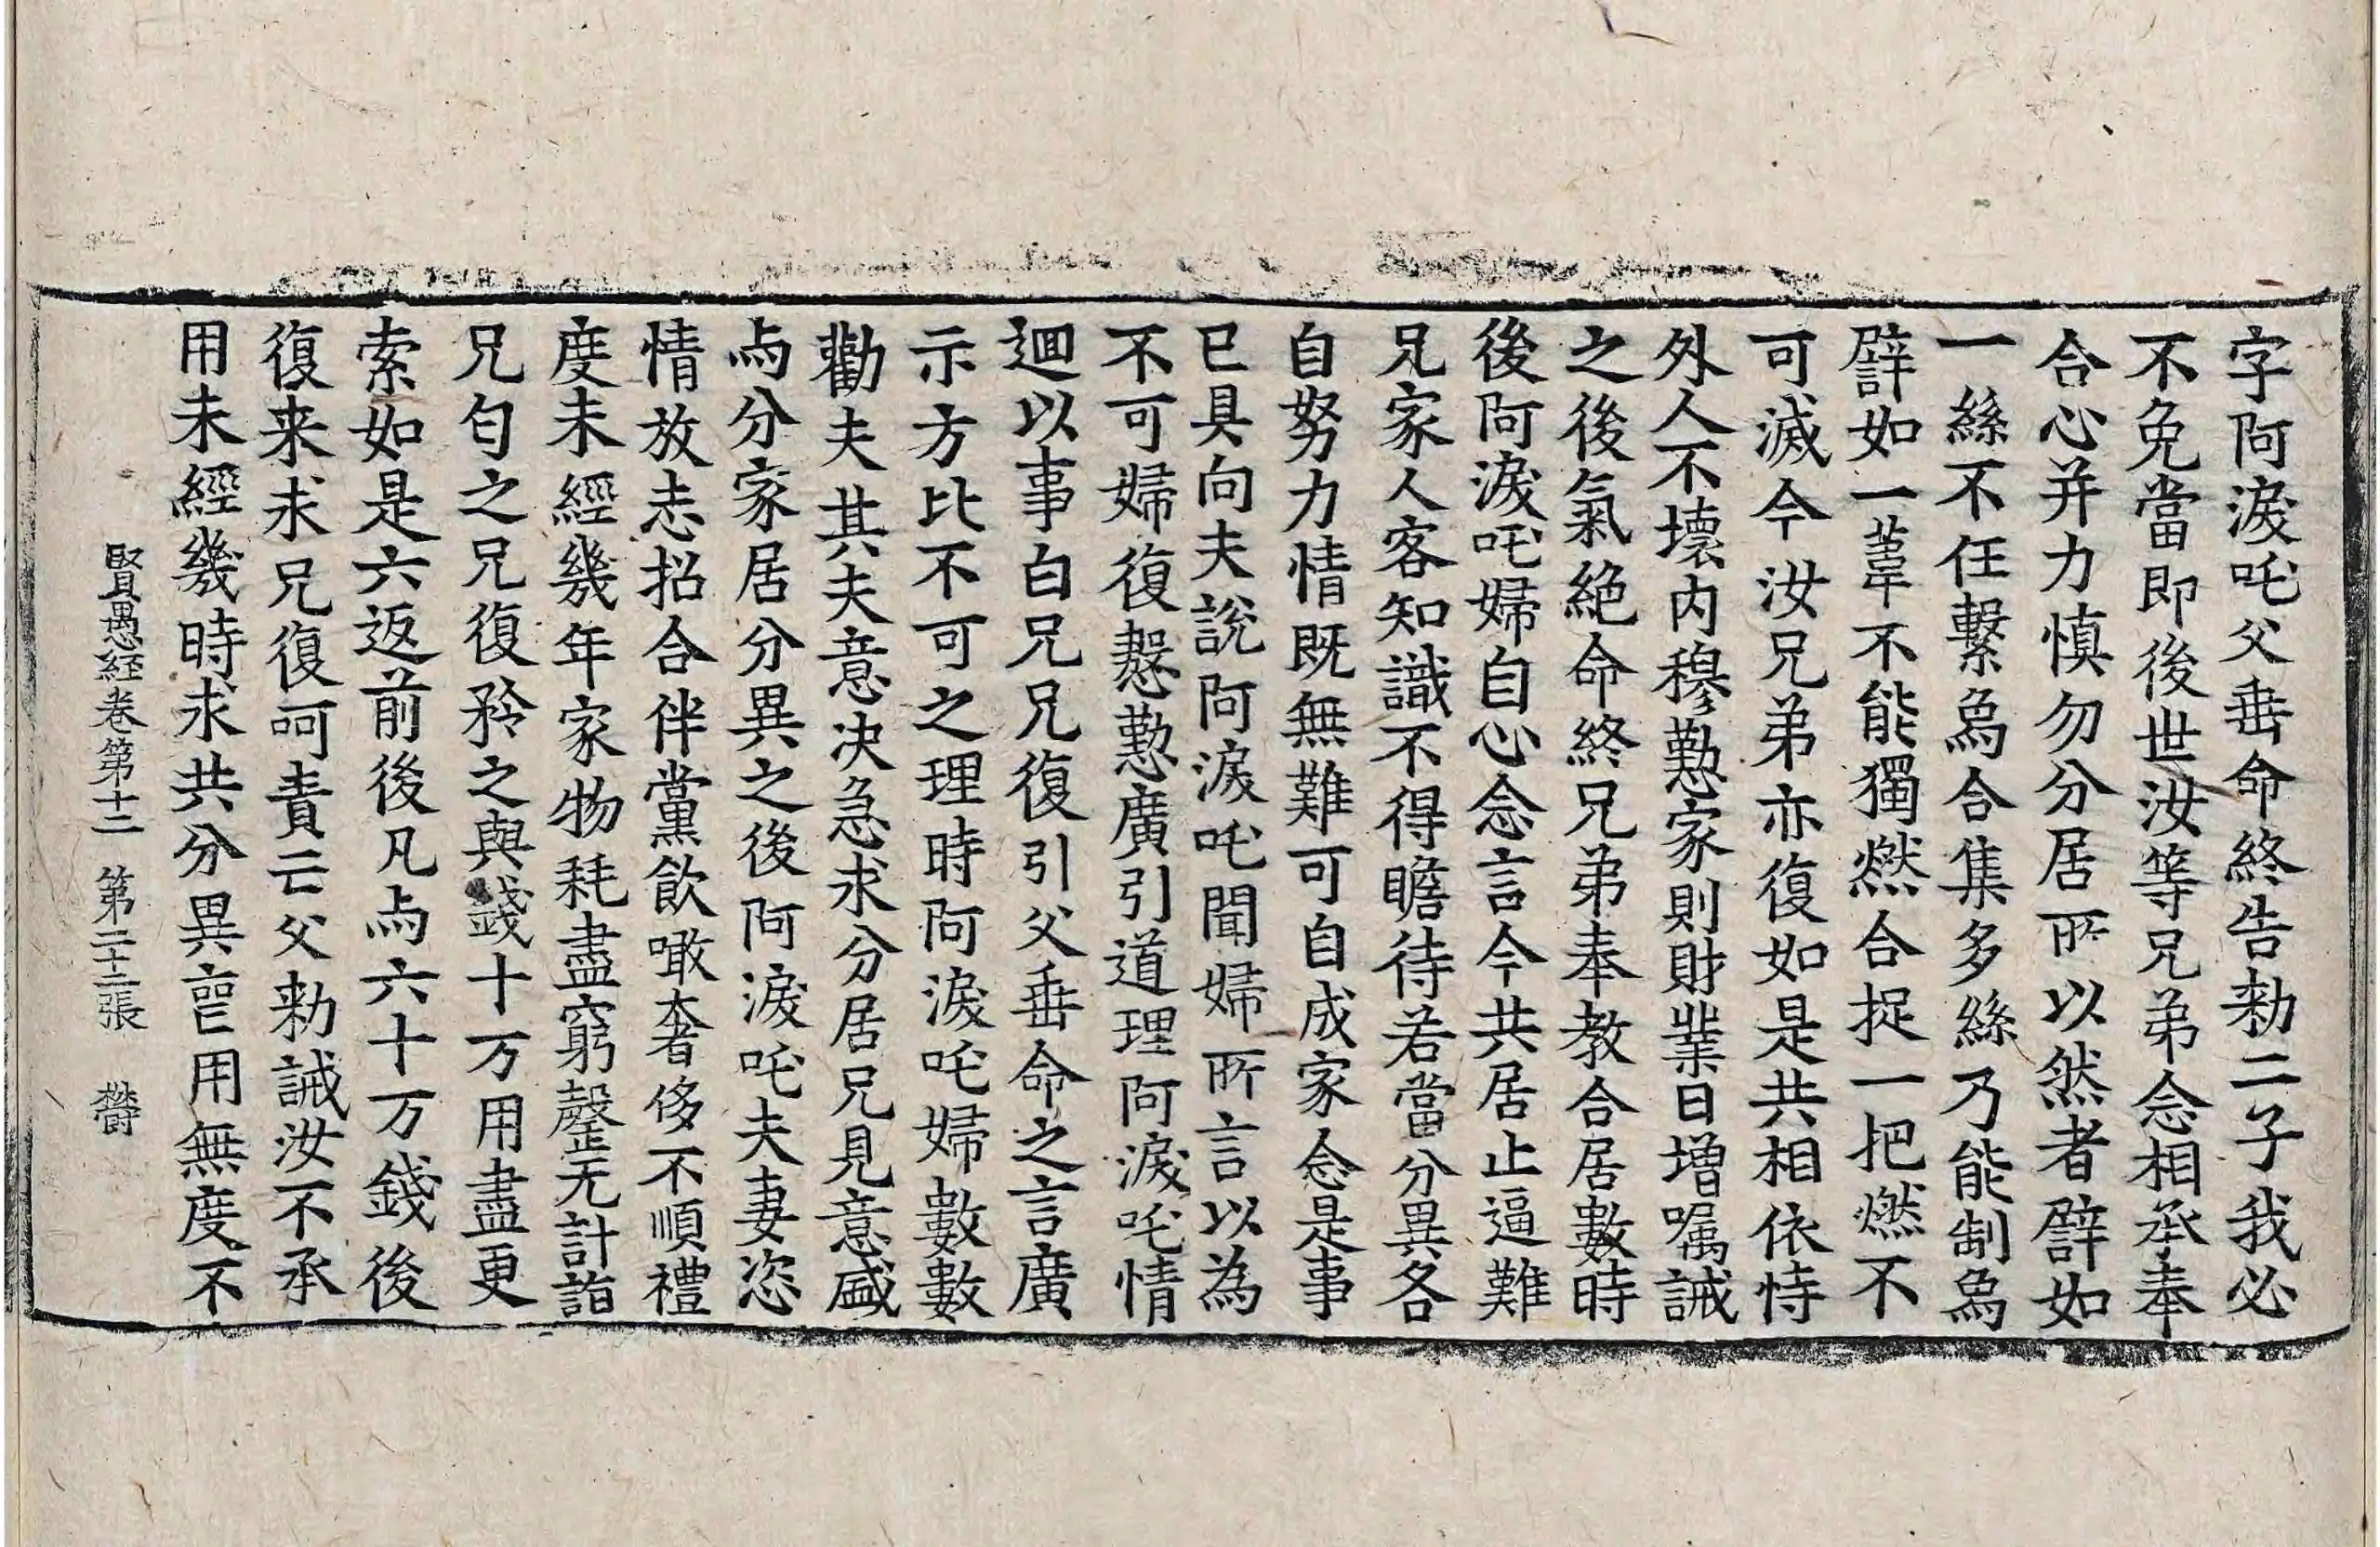 字阿淚吒父垂命終告勑二子我必
不免當即後世汝等兄弟念相承奉
合心并力慎勿分居所以然者譬如
一絲不任繫爲合集多絲乃能制爲
譬如一葦不能獨燃合捉一把燃不
可滅今汝兄弟亦復如是共相依恃
外人不壞内穆懃家則財業日增囑誡
之後氣絶命終兄弟奉教合居數時
後阿淚吒婦自心念言今共居止逼難
兄家人客知識不得瞻待若當分異各
自努力情既無難可自成家念是事
已具向夫說阿淚吒聞婦所言以為
不可婦復慇懃廣引道理阿淚吒情
迴以事白兄兄復引父垂命之言廣
示方比不可之理時阿淚吒婦數數
勸夫其夫意决急求分居兄見意盛
与分家居分異之後阿淚吒夫妻恣
情放志招合伴黨飲噉奢侈不順禮
度未經幾年家物耗盡窮罄无計詣
兄匂之兄復矜之與錢十万用盡更
索如是六返前後凡与六十万錢後
復来求兄復呵責云父勑誡汝不承
用未經幾時求共分異豈用無度不
賢愚經卷第十二　第二十二張　欝